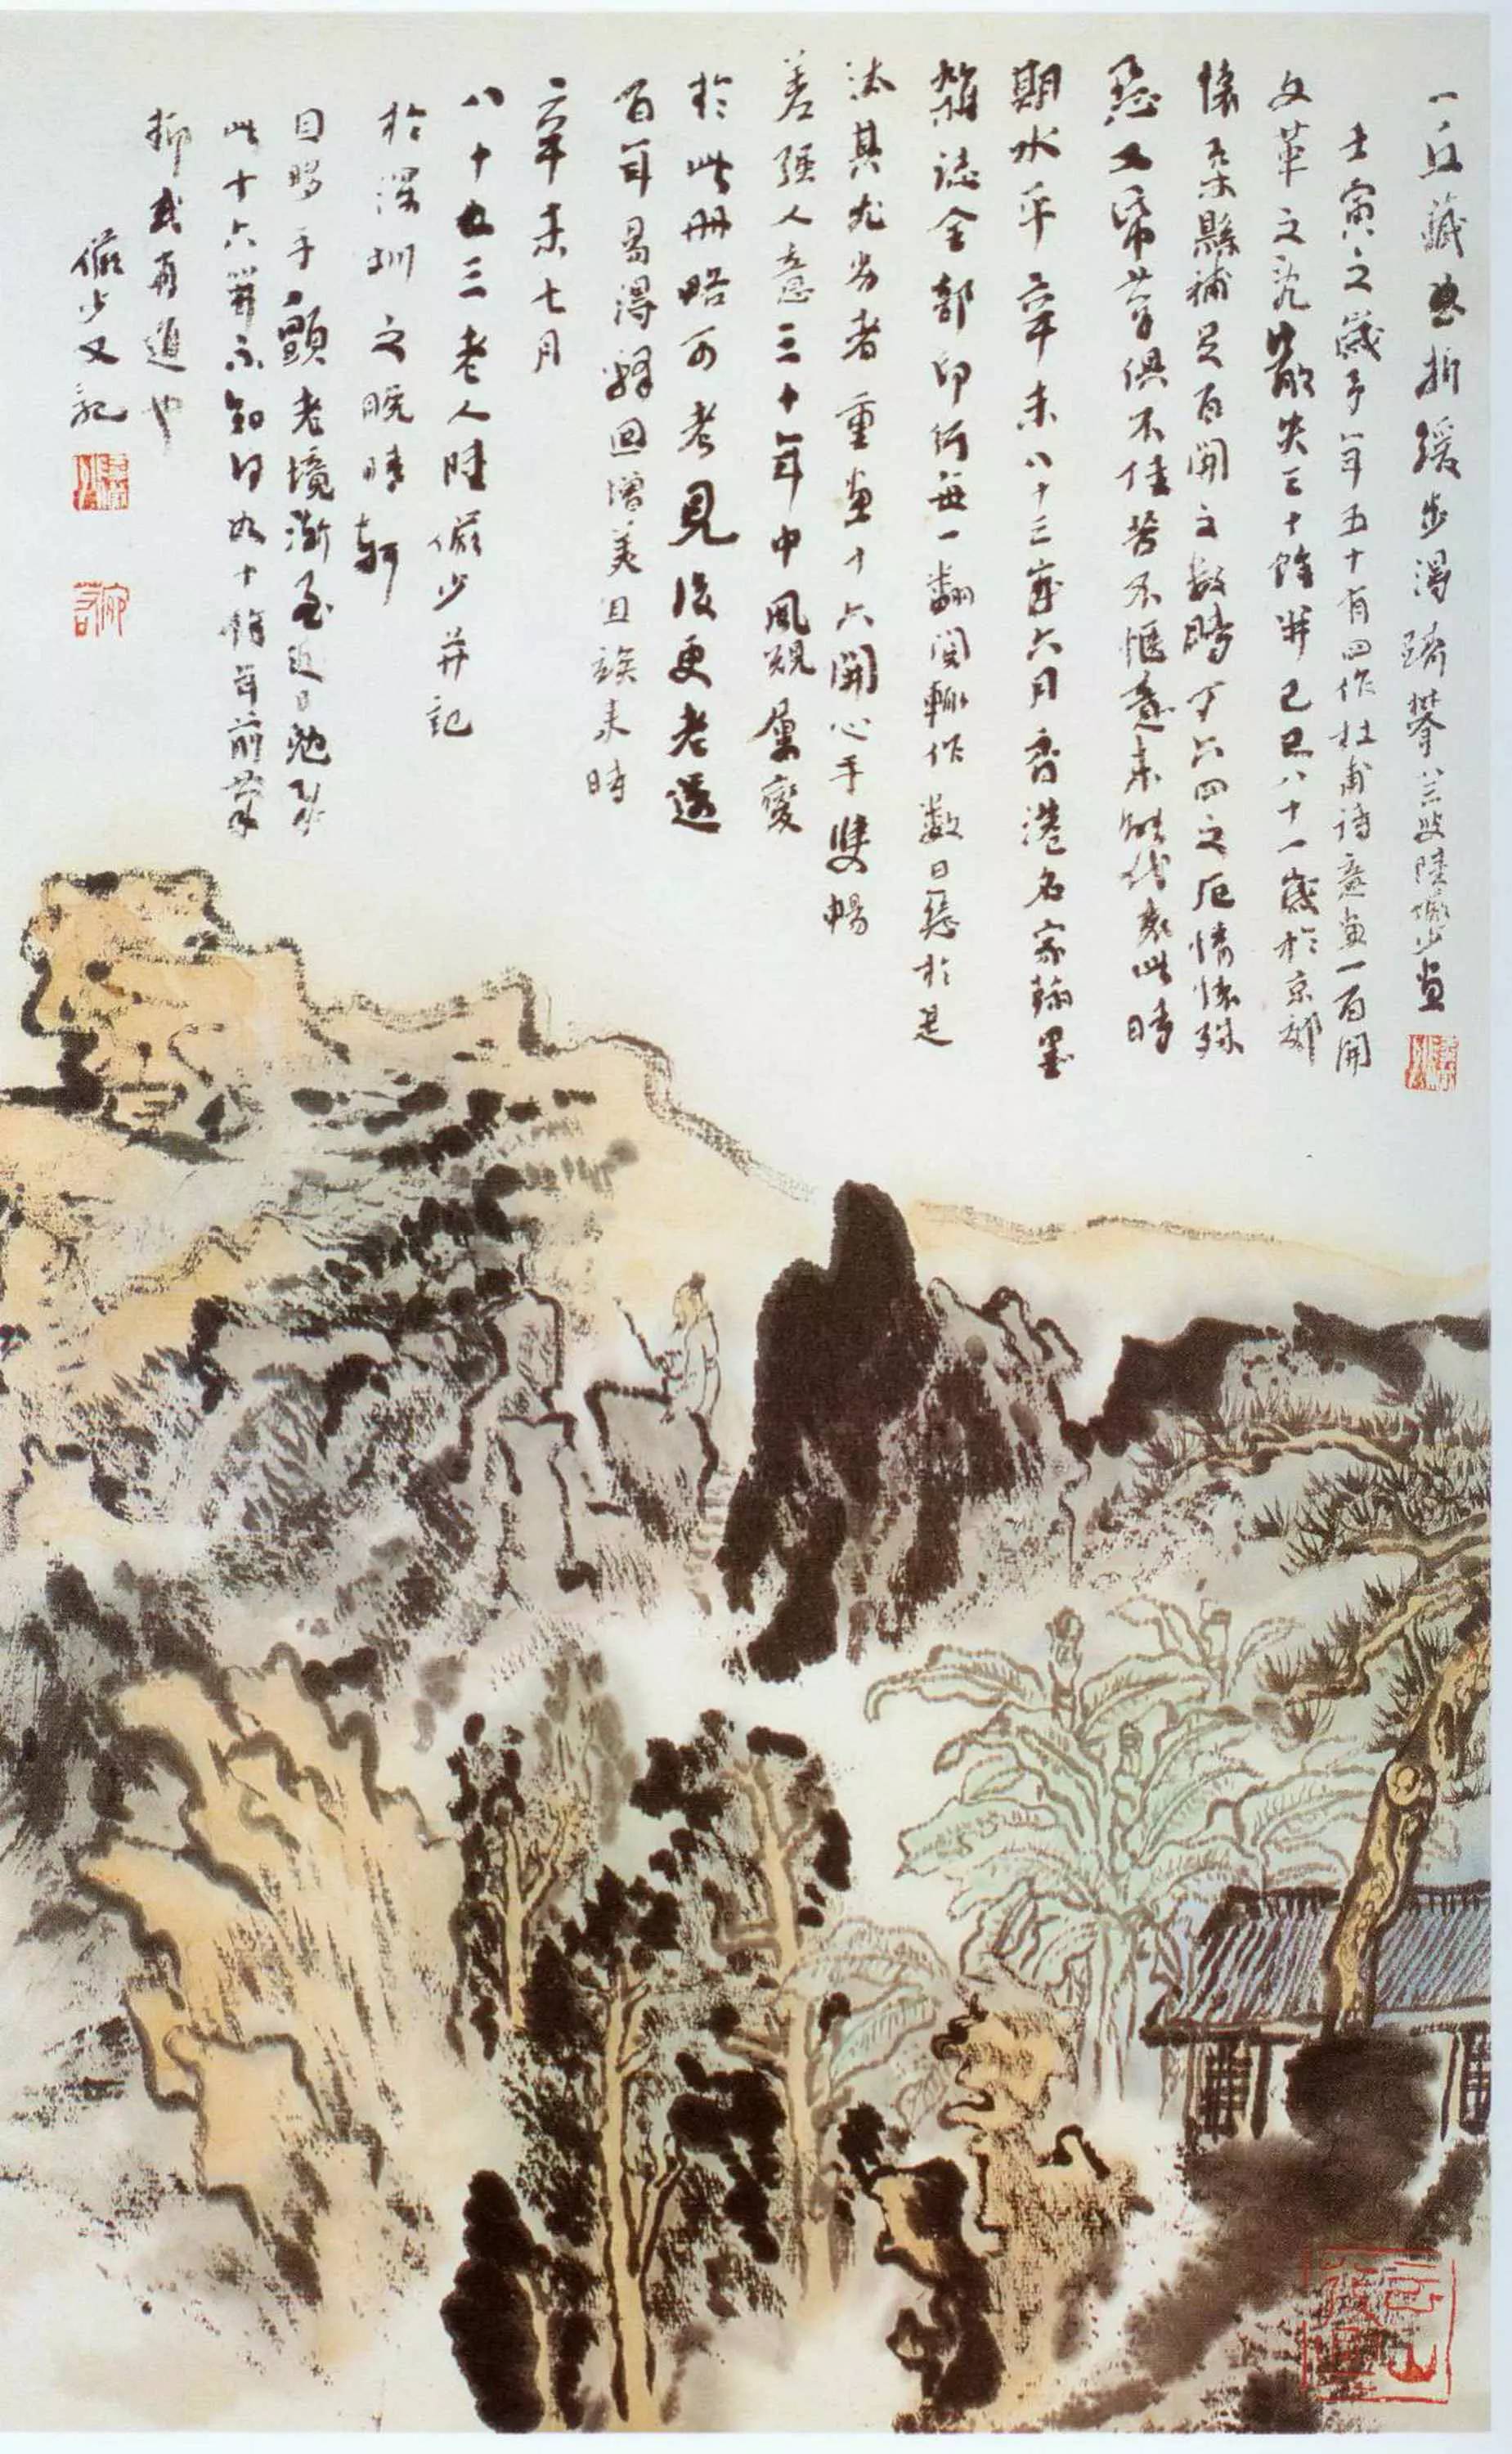 一丘藏曲折緩步渴躋攀 陸儼少畫
壬寅之歲予年五十有四作杜甫詩意畫一百開
文革之亂散失三十餘開己巳八十一歲於京郊
懷柔縣補足百開之數時丁六四之厄情懷殊
惡又紙筆俱不佳苦不愜意未能代表此時
期水平辛未八十三歲六月香港名家翰墨
雜誌全部印行每一翻閱輒作數日惡於是
汰其尤劣者重畫十六開心手雙暢
差強人意三十年中風規屢變
於此冊略可考見後更老還
百年易得 回增美且 來時
辛未七月
八十又三老人陸儼少并記
於深圳之晚晴軒
目眵手顫老境漸至近日勉成
此十六開不知何如十餘年前筆
抑或再進也
儼少又記